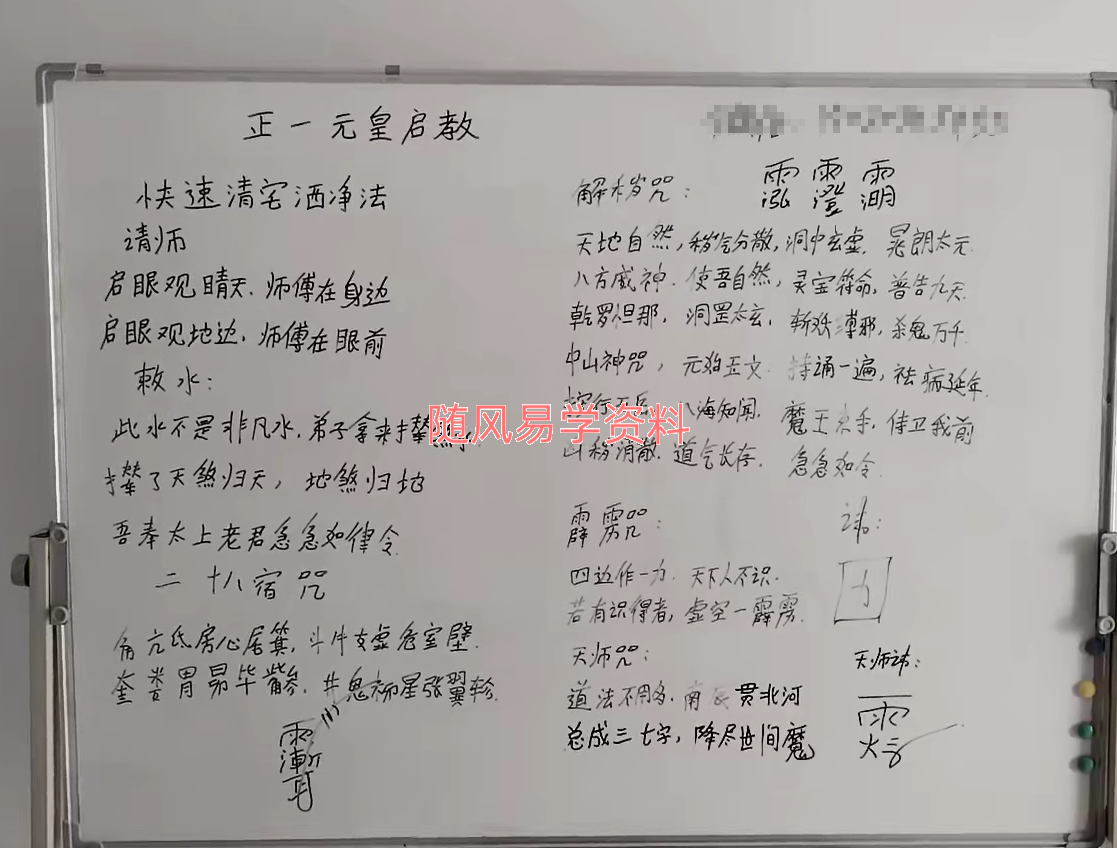 正一元皇启教
快速清宅洒净法
请师
启眼观晴天.师傅在身边
启眼观地边,师傅在眼前
敕水:
此水不是非凡水,弟子拿来
了天煞归天,地煞归地
吾奉太上老君急急如律令
二十八宿咒
角亢氐房心尾箕,斗牛女虚危室壁.
奎娄胃昴毕觜参.井鬼柳星张翼轸.
解秽咒:
天地自然,秽炁分散,洞中玄虚.晃朗太元
八方威神.使吾自然,灵宝符命,普告九天
乾罗怛那,洞罡太玄,斩妖缚邪,杀鬼万千
中山神咒,元始玉文.持诵一遍,祛病延年
按行五岳,八海知闻,魔王束手,侍卫我前
凶秽消散.道炁长存.急急如令.
霹雳咒:
讳:
四边作一力.天下人不识.
若有识得者,虚空一霹雳.
力
天师咒:
天师讳:
道法不用多,南辰贯北河
总成三七字,降尽世间魔
随风易学资料